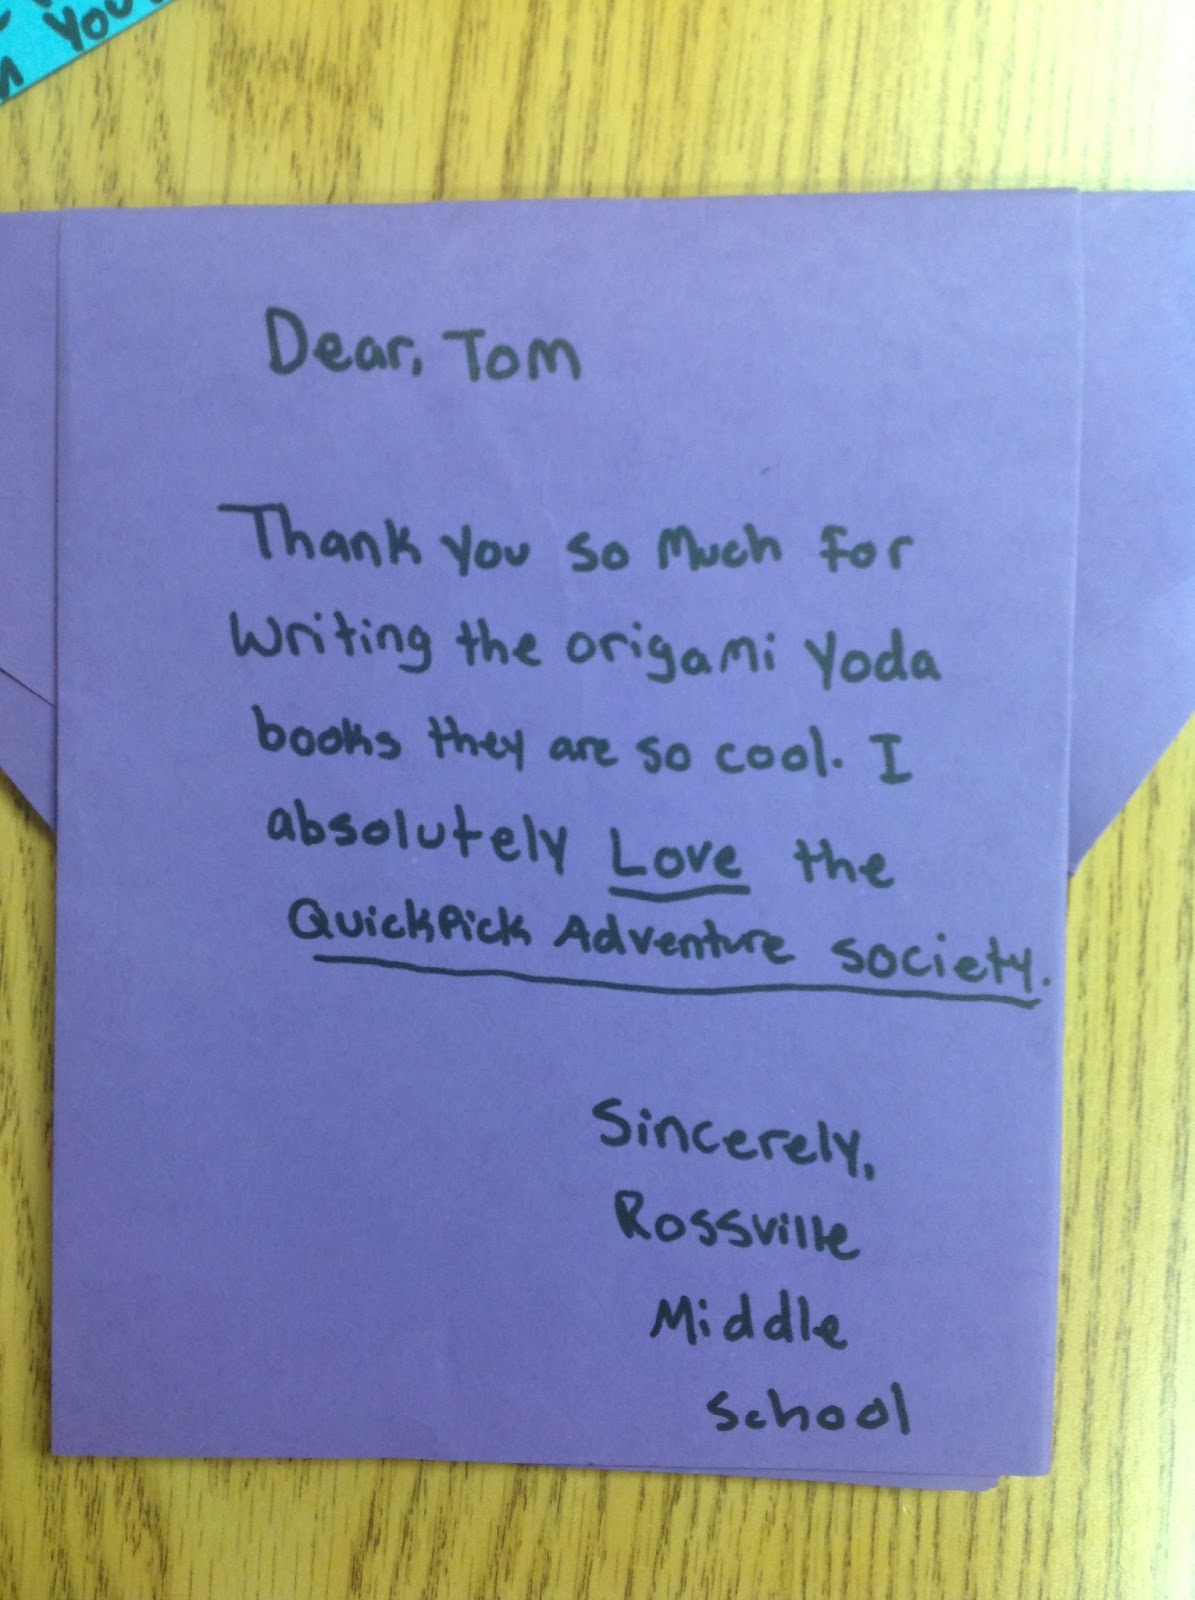 You
Dear, Tom
Thank you so much for
writing the origami Yoda
books they are so cool. I
absolutely Love the
QuickPick Adventure society.
Sincerely,
Rossville
Middle
School